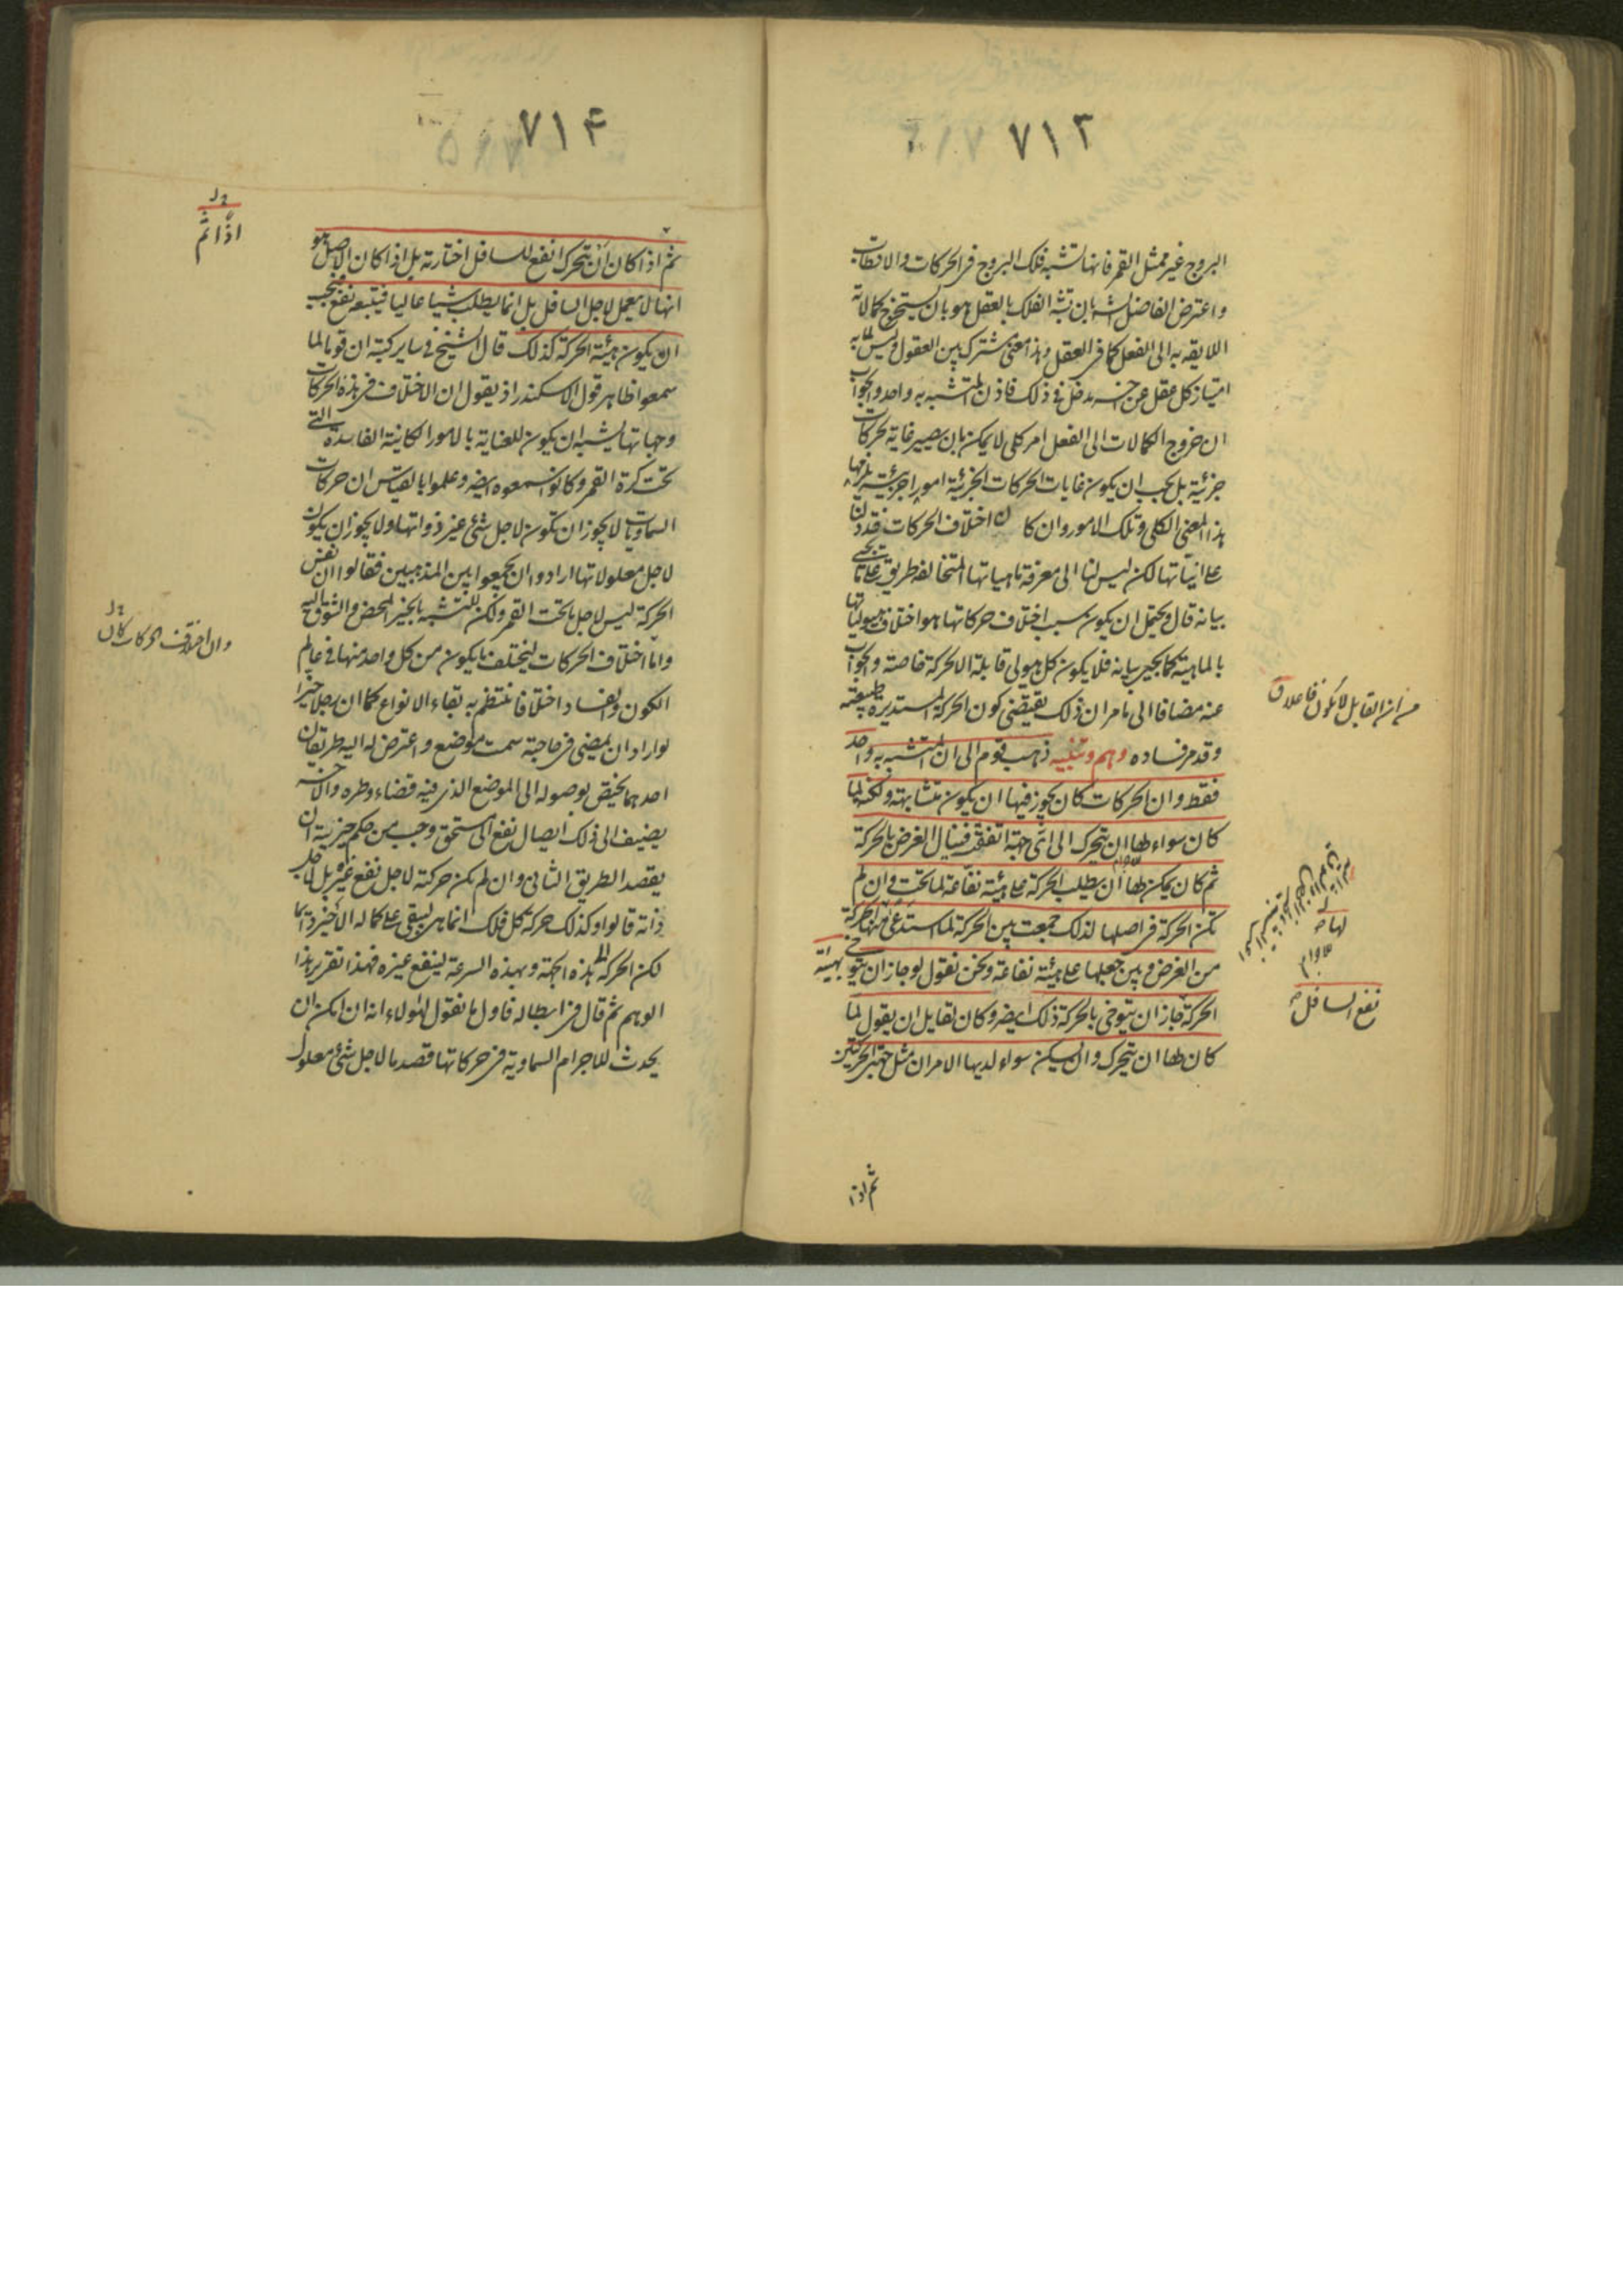 ٧١٣
البروج غير ممثل القمر فانها تشبه فلك البروج فى الحركات والاقطاب
واعترض الفاضل الشارح بان تشبه الفلك بالعقل هو بان يستخرج كمالاته
اللايقه به الى الفعل كما فى العقل وهذا معنى مشترك بين العقول وليس لما به
امتياز كل عقل عن جنسه مدخل فى ذلك فاذن المتشبه به واحد والجواب
ان خروج الكمالات الى الفعل امر كلى لا يمكن بان يصير غاية لحركات
جزئية بل يجب ان يكون غايات الحركات الجزئية امورا جزئية يلزمها
هذا المعنى الكلى وتلك الامور وان كان اختلاف الحركات فقد دلنا
على انياتها لكن ليس لنا الى معرفة ماهياتها المتخالفه طريق على ما يجىء
بيانه قال ويحتمل ان يكون سبب اختلاف حركاتها هو اختلاف هيولياتها
بالماهية كما يجىء بيانه فلا يكون كل هيولى قابلة الا لحركة خاصة والجواب
عنه مضافا الى ما مر ان ذلك يقتضى كون الحركة المستديرة طبيعية
وقد مر فساده وهم وتنبيه ذهب قوم الى ان المتشبه به واحد
فقط وان الحركات كان يجوز فيها ان يكون متشابهة ولكنه لما
كان سواء لها ان يتحرك الى اى جهة اتفقت فينال الغرض بالحركة
ثم كان يمكن لها ان يطلب الحركة على هيئة نفاعة لما تحت وان لم
تكن الحركة فى اصلها لذلك جمعت بين الحركة لما استدعى منها الحركة
من الغرض وبين جعلها على هيئة نفاعة ونحن نقول لو جاز ان يتوخى بهيئة
الحركة جاز ان يتوخى بالحركة ذلك ايضر وكان لقايل ان يقول لما
كان لها ان يتحرك وان يسكن سواء لديها الامران مثل جهتى الحركتين
ثم اذا
من ان القابل لا يكون فاعلا ق
نفع السافل ص
٧١۴
ثم اذا كان ان يتحرك انفع للسافل اختارته بل اذا كان الاصل هو
انها لا يعمل لاجل السافل بل انما يطلب شيئا عاليا فيتبعه نفع فيجب
ان يكون هيئة الحركة كذلك قال الشيخ فى ساير كتبه ان قوما لما
سمعوا ظاهر قول الاسكندر اذ يقول ان الاختلاف فى هذه الحركات
وجهاتها يشبه ان يكون للعناية بالامور الكائنة الفاسدة التى
تحت كرة القمر وكانوا سمعوه ايضر وعلموا بالقياس ان حركات
السماويات لا يجوز ان تكون لاجل شئ غير ذواتها ولا يجوز ان يكون
لاجل معلولاتها ارادوا ان يجمعوا بين المذهبين فقالوا ان نفس
الحركة ليس لاجل ما تحت القمر ولكن للتشبه بالخير المحض والتشوق اليه
واما اختلاف الحركات ليختلف ما يكون من كل واحد منها فى عالم
الكون والفساد اختلافا ينتظم به بقاء الانواع كما ان رجلا خيرا
لو اراد ان يمضى فى حاجته سمت موضع واعترض له اليه طريقان
احدهما يختص بوصوله الى الموضع الذى فيه قضاء وطره والاخر
يضيف الى ذلك ايصال نفع الى مستحق وجب من حكم خيريته ان
يقصد الطريق الثانى وان لم يكن حركته لاجل نفع غيره بل لاجل
ذاته قالوا وكذلك حركة كل فلك انما هى ليبقى على كماله الاخير دائما
لكن الحركة الى هذه الجهة وبهذه السرعة لينفع غيره فهذا تقرير هذا
الوهم ثم قال فى ابطاله فاول ما نقول لهؤلاء انه ان امكن ان
يحدث للاجرام السماوية فى حركاتها قصد ما لاجل شئ معلول
اذا ثم
وان اختلاف الحركات كان